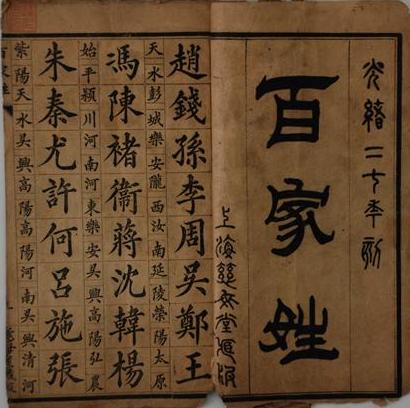 光緒二七年刻
百家姓
上海
趙錢孫李周吳鄭王
天水彭城樂安隴西汝南延陵滎陽太原
馮陳褚衞蔣沈韓楊
始平潁川河南河東樂安吳興高陽弘農
朱秦尤許何呂施張
紫陽天水吳興高陽高陽河南吳興清河
百家姓